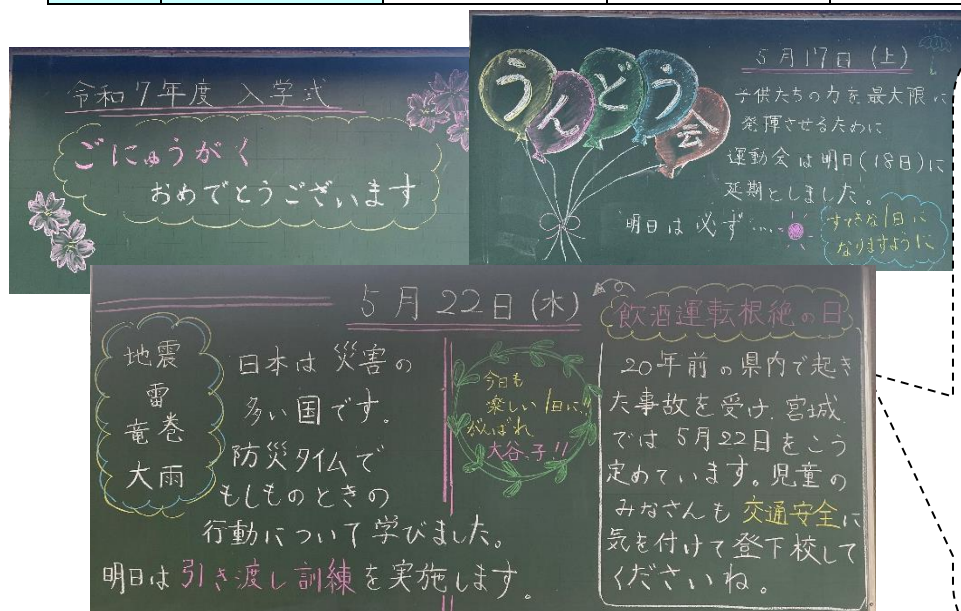 令和7年度 入学式
ごにゅうがく
おめでとうございます
うんどう会
5月17日(土)
子供たちの力を最大限に
発揮させるために
運動会は明日(18日)に
延期としました。
明日は必ず……
すてきな1日に
なりますように
5月22日(木)
地震
雷
竜巻
大雨
日本は災害の
多い国です。
防災タイムで
もしものときの
行動について学びました。
明日は引き渡し訓練を実施します。
今日も
楽しい1日に!!
がんばれ
大谷っ子!!
飲酒運転根絶の日
20年前の県内で起き
た事故を受け、宮城
では5月22日をこう
定めています。児童の
みなさんも交通安全に
気を付けて登下校して
くださいね。